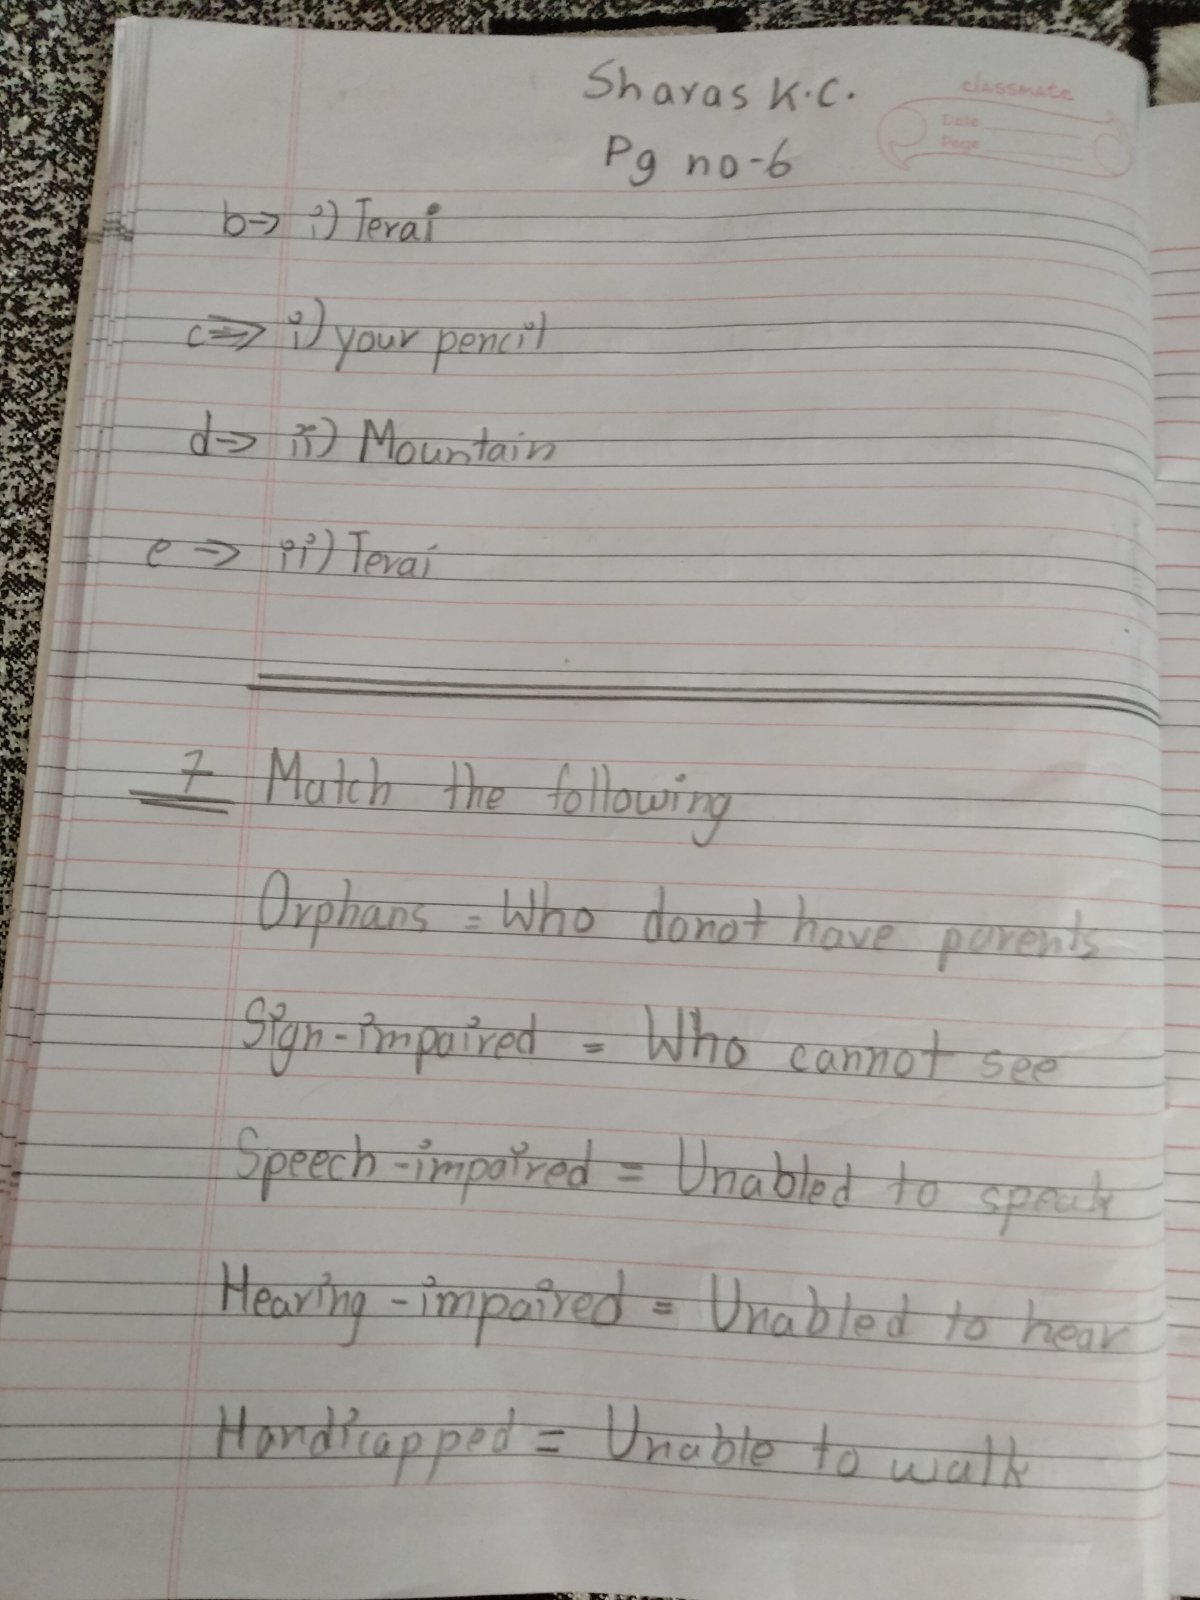 Sharas K.C.
classmate
Date
Page
Pg no-6
b→ i) Terai
c⇒ i) your pencil
d→ ii) Mountain
e → ii) Terai
7 Match the following
Orphans = Who donot have parents
Sign-impaired = Who cannot see
Speech-impaired = Unabled to speak
Hearing-impaired = Unabled to hear
Handicapped = Unable to walk